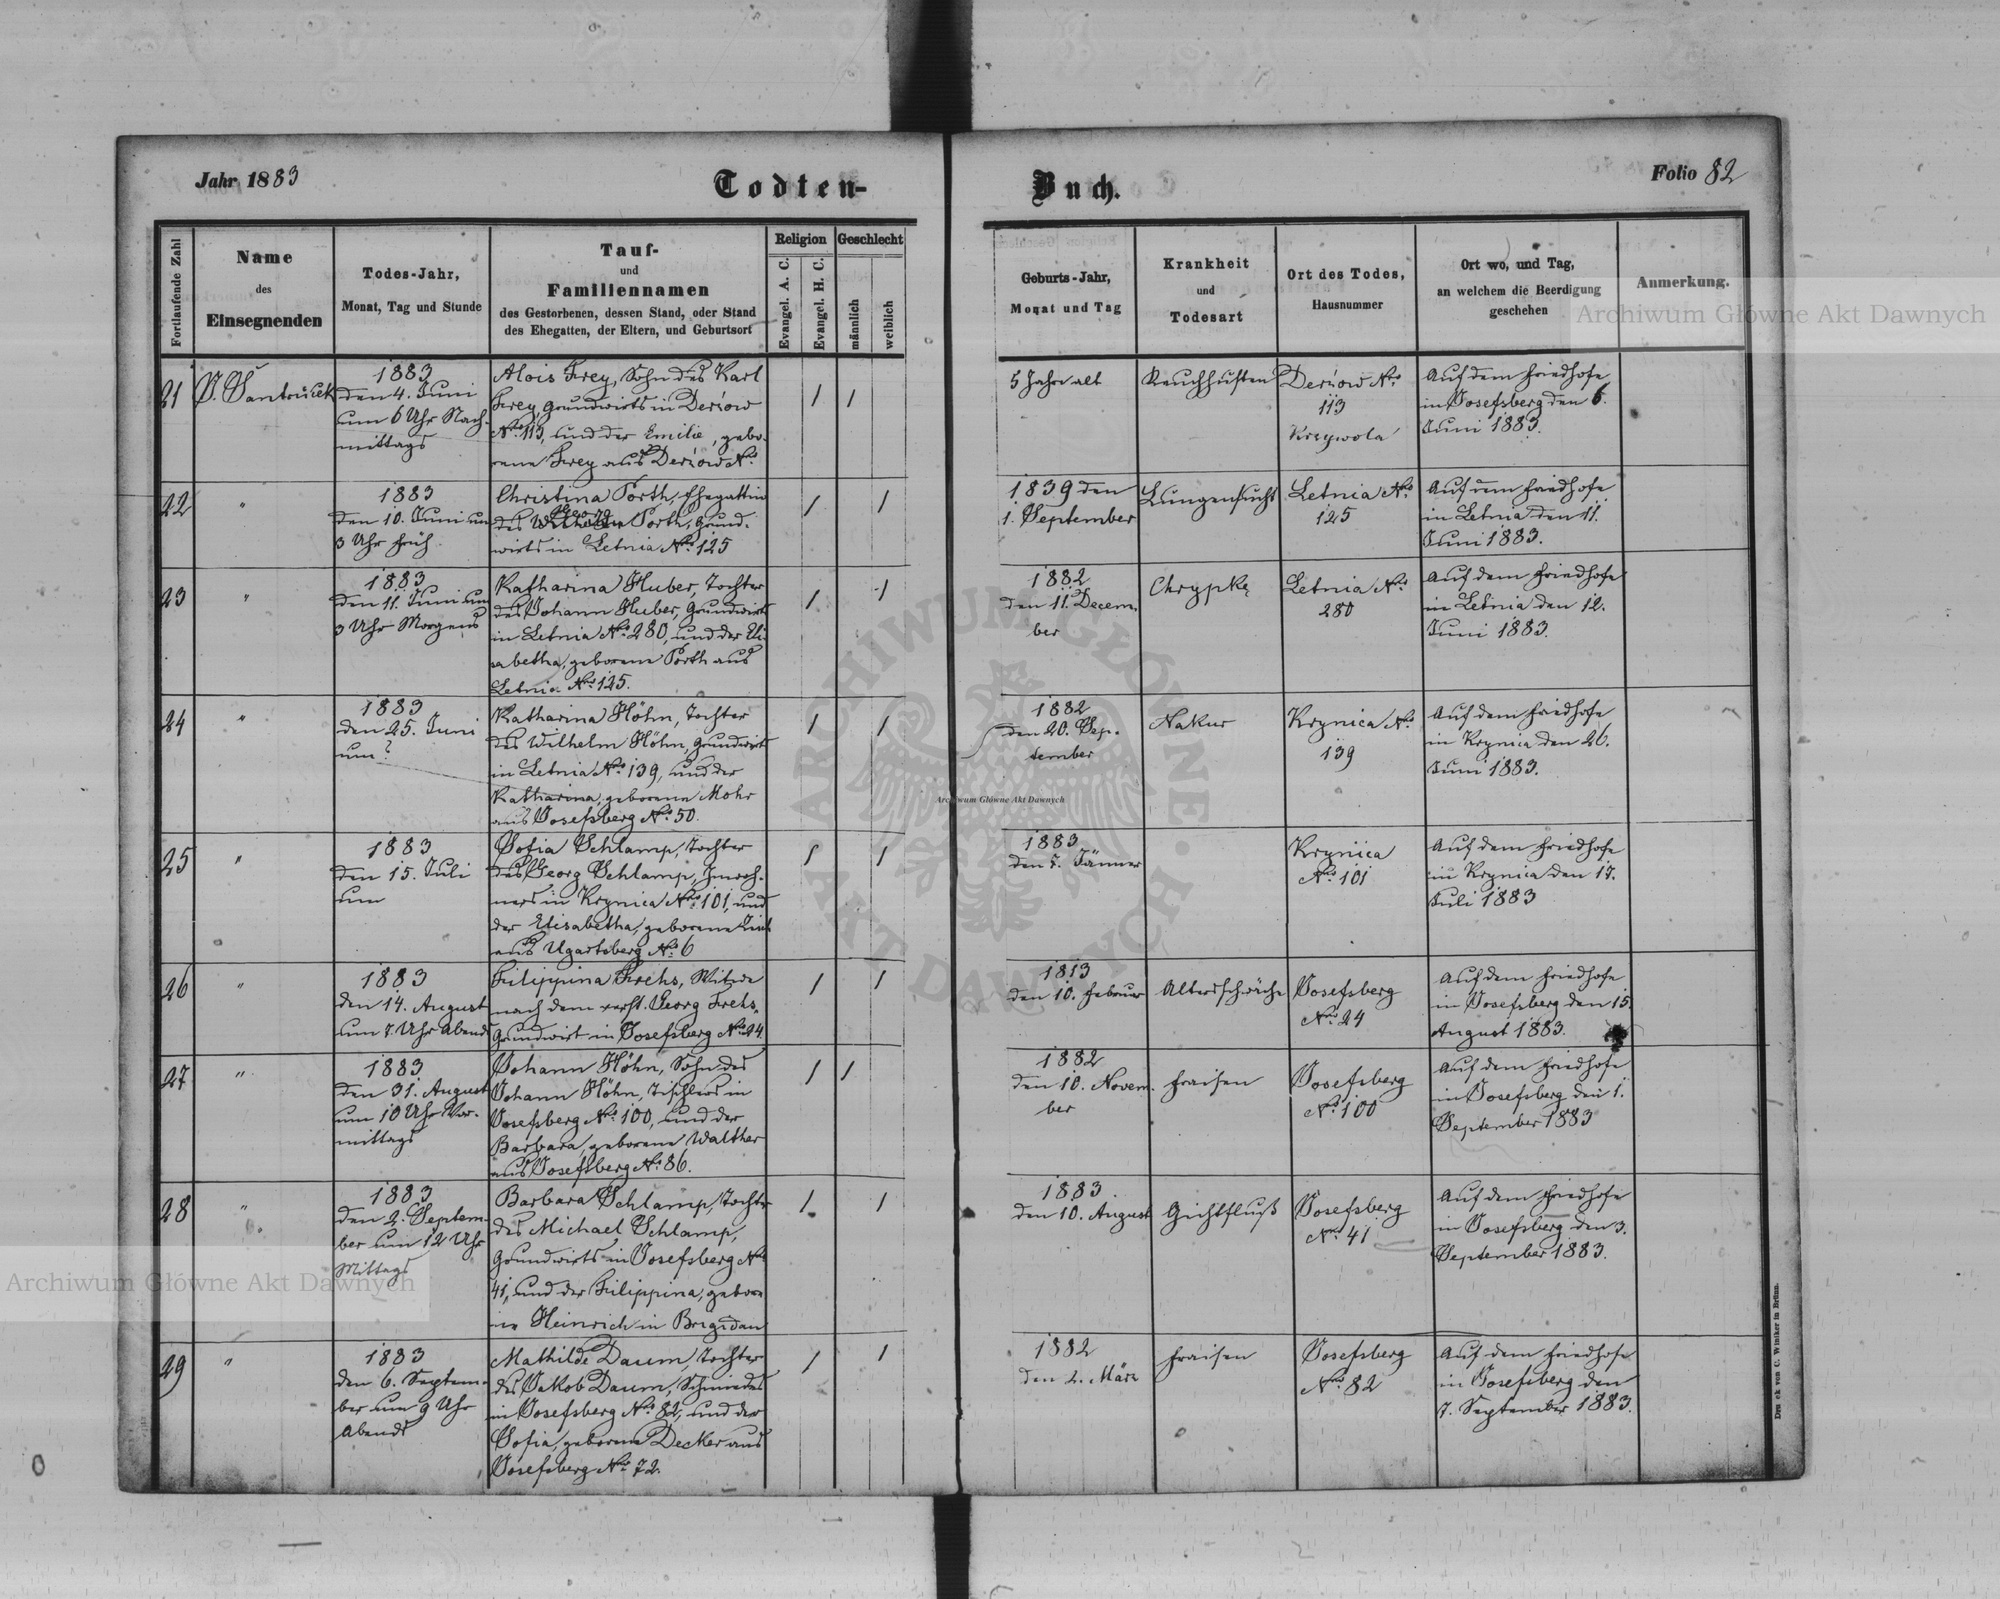 Jahr 1883
Todten-
Buch.
Folio 82
Fortlaufende Zahl
Name
des
Einsegnenden
Todes-Jahr,
Monat, Tag und Stunde
Tauf-
und
Familiennamen
des Gestorbenen, dessen Stand, oder Stand
des Ehegatten, der Eltern, und Geburtsort
Religion
Evangel. A. C.
Evangel. H. C.
Geschlecht
männlich
weiblich
Geburts-Jahr,
Monat und Tag
Krankheit
und
Todesart
Ort des Todes,
Hausnummer
Ort wo, und Tag,
an welchem die Beerdigung
geschehen
Anmerkung.
21
1883
den 4. Juni
um 6 Uhr Nach-
mittags
Alois Frey, Sohn des Karl
Frey, Grundwirts in Derżow
No. 113, und der Emilie, gebo-
rene Frey aus Derżow No.
/ /
5 Jahre alt
Keuchhusten
Derżow No.
113
Krzywola
Auf dem Friedhofe
in Josefsberg den 6.
Juni 1883.
22
"
1883
den 10. Juni um
3 Uhr früh.
Christina Porth, Ehegattin
Georg
des Wilhelm Porth, Grund-
wirts in Letnia No. 125
/ /
1839 den
1. September
Lungensucht
Letnia No.
125
Auf dem Friedhofe
in Letnia den 11.
Juni 1883.
23
"
1883
den 11. Juni um
3 Uhr Morgens
Katharina Huber, Tochter
des Johann Huber, Grundwirts
in Letnia No. 280, und der Eli-
sabetha, geborene Porth aus
Letnia No. 125.
/ /
1882
den 11. Decem-
ber
Chrypkę
Letnia No.
280
Auf dem Friedhofe
in Letnia den 12.
Juni 1883.
24
"
1883
den 25. Juni
um ?
Katharina Höhn, Tochter
des Wilhelm Höhn, Grundwirts
in Letnia No. 139, und der
Katharina, geborene Mohr
aus Josefsberg No. 50.
/ /
1882
den 20. Sep-
tember
Krynica No.
139
Auf dem Friedhofe
in Krynica den 26.
Juni 1883.
25
"
1883
den 15. Juli
um
Sofia Schlamp, Tochter
des Georg Schlamp, Inwoh-
ners in Krynica No. 101, und
der Elisabetha, geborene
aus Ugartsberg No. 6
/ /
1883
den 7. Jänner
Krynica
No. 101
Auf dem Friedhofe
in Krynica den 17.
Juli 1883
26
"
1883
den 14. August
um 7 Uhr Abends
Filippina Frehs, Witwe
nach dem verst. Georg Frehs,
Grundwirt in Josefsberg No. 24
/ /
1813
den 10. Februar
Altersschwäche
Josefsberg
No. 24
Auf dem Friedhofe
in Josefsberg den 15.
August 1883.
27
"
1883
den 31. August
um 10 Uhr Vor-
mittags
Johann Höhn, Sohn des
Johann Höhn, Tischlers in
Josefsberg No. 100, und der
Barbara, geborene Walther
aus Josefsberg No. 86.
/ /
1882
den 10. Novem-
ber
Fraisen
Josefsberg
No. 100
Auf dem Friedhofe
in Josefsberg den 1.
September 1883
28
"
1883
den 2. Septem-
ber um 12 Uhr
Mittags
Barbara Schlamp, Tochter
des Michael Schlamp,
Grundwirts in Josefsberg No.
41, und der Filippina, gebore-
ne Heinrich in Brigidau
/ /
1883
den 10. August
Gichtfluß
Josefsberg
No. 41
Auf dem Friedhofe
in Josefsberg den 3.
September 1883.
29
"
1883
den 6. Septem-
ber um 9 Uhr
Abends
Mathilde Daum, Tochter
des Jakob Daum, Schmiedes
in Josefsberg No. 82, und der
Sofia, geborene Decker aus
Josefsberg No. 72.
/ /
1882
den 2. März
Fraisen
Josefsberg
No. 82
Auf dem Friedhofe
in Josefsberg den
7. September 1883.
von C. Winiker in Brünn.
Archiwum Główne Akt Dawnych
Archiwum Główne Akt Dawnych
Archiwum Główne Akt Dawnych
ARCHIWUM GŁÓWNE AKT DAWNYCH